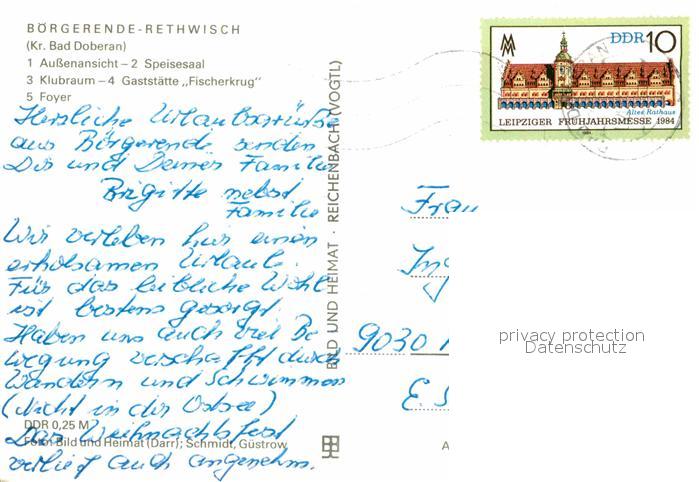 BÖRGERENDE-RETHWISCH
(Kr. Bad Doberan)
1 Außenansicht – 2 Speisesaal
3 Klubraum – 4 Gaststätte „Fischerkrug"
5 Foyer
Herzliche Urlaubsgrüße
aus Börgerende senden
Dir und Deiner Familie
Brigitte nebst
Familie
Wir verleben hier einen
erholsamen Urlaub.
Für das leibliche Wohl
ist bestens gesorgt.
Haben uns auch viel Be
wegung verschafft durch
Wandern und Schwimmen
(nicht in der Ostsee)
Das Weihnachtsfest
verlief auch angenehm.
DDR 0,25 M
Foto: Bild und Heimat (Darr); Schmidt, Güstrow
BILD UND HEIMAT · REICHENBACH (VOGTL)
DDR 10
Altes Rathaus
LEIPZIGER FRÜHJAHRSMESSE 1984
Frau
9030
privacy protection
Datenschutz